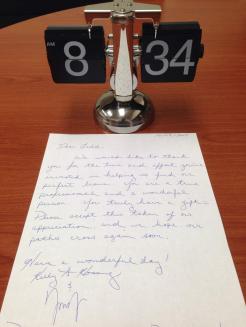 AM
8 34
Dear Todd,
We would like to thank
you for the time and effort you've
invested in helping us find our
perfect home. You are a true
professional and a wonderful
person. You truly have a gift.
Please accept this token of our
appreciation and we hope our
paths cross again soon.
Have a wonderful day!
&